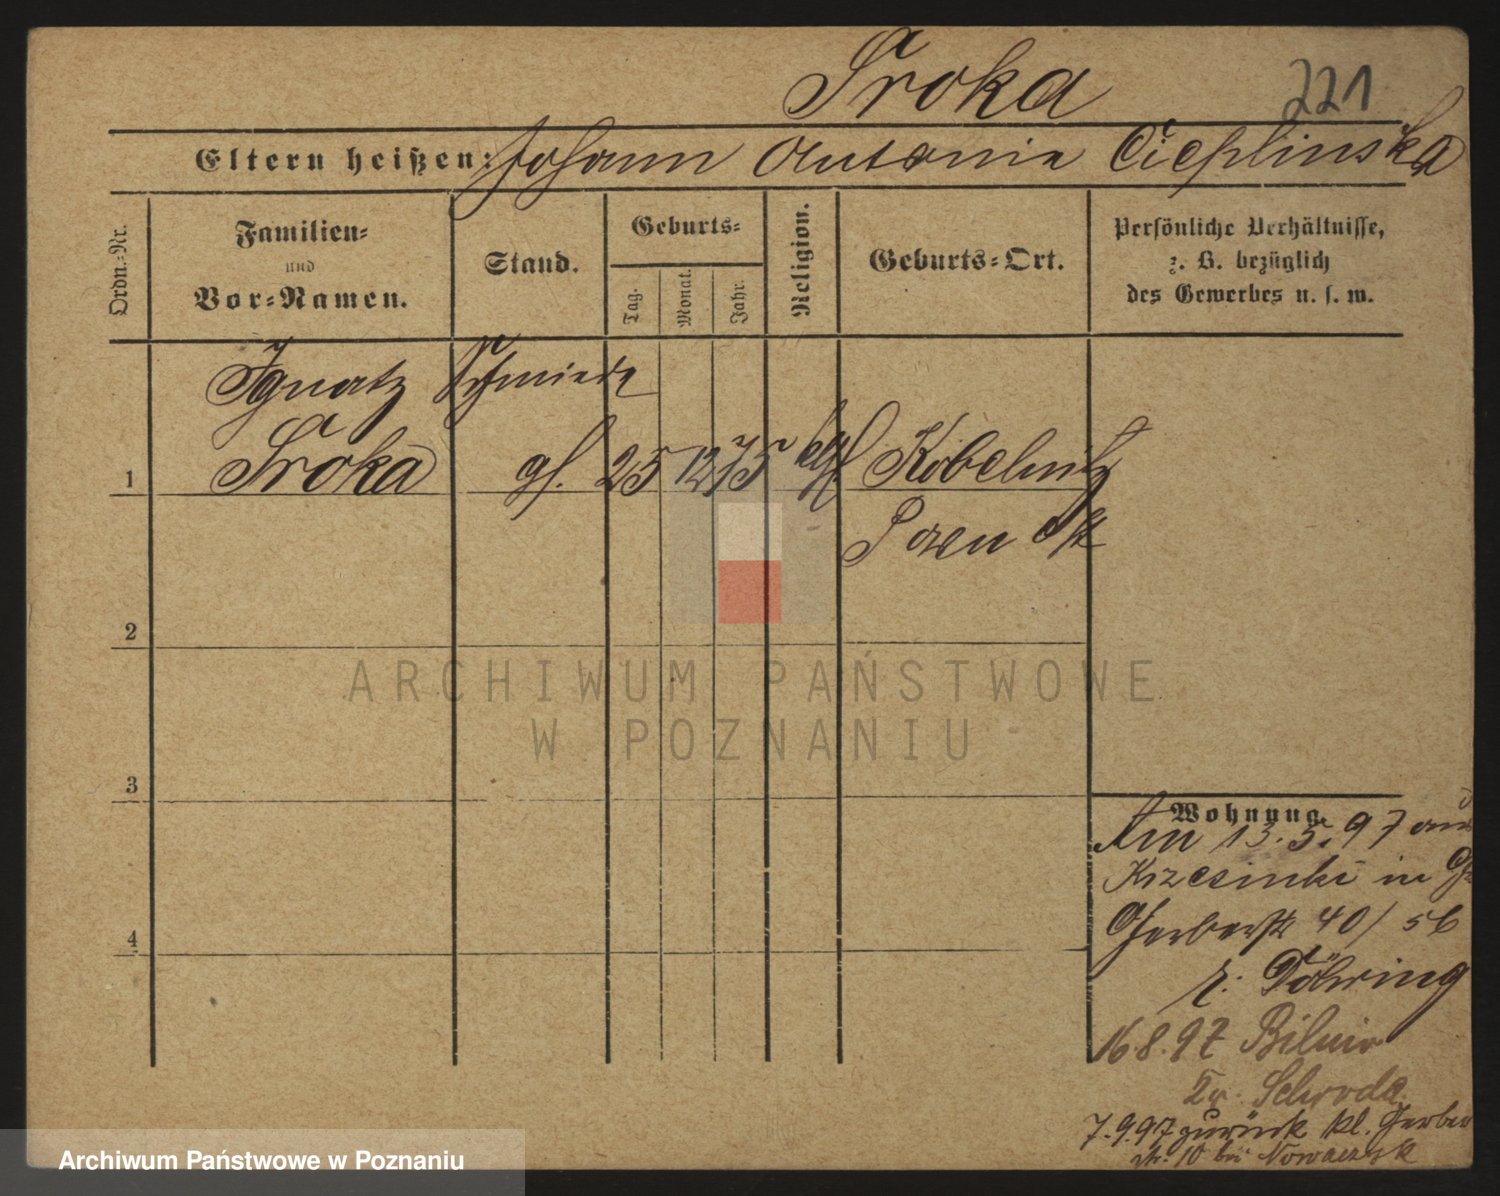 Sroka
221
Eltern heißen: Johann Antonie Cieplinska
Ordn.-Nr.
Familien-
und
Vor-Namen.
Stand.
Geburts-
Tag.
Monat.
Jahr.
Religion.
Geburts-Ort.
Persönliche Verhältnisse,
z. B. bezüglich
des Gewerbes u. s. w.
Ignatz Schmiede
1 Sroka gs. 25 12 75 kth Kobelnitz
Posen Ost
2
ARCHIWUM PAŃSTWOWE
W POZNANIU
3
Wohnung
Am 13.5.97 aus
Krzesinki in
4
Gerberstr 40/56
b. Döhring
16.8.97 Bilnir
Kr. Schroda
7.9.97 zurück kl. Gerber
str. 10 bei Nowaczyk
Archiwum Państwowe w Poznaniu